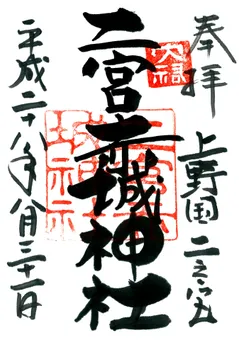 奉拝
上野国二之宮
二宮赤城神社
平成二十八年八月三十一日